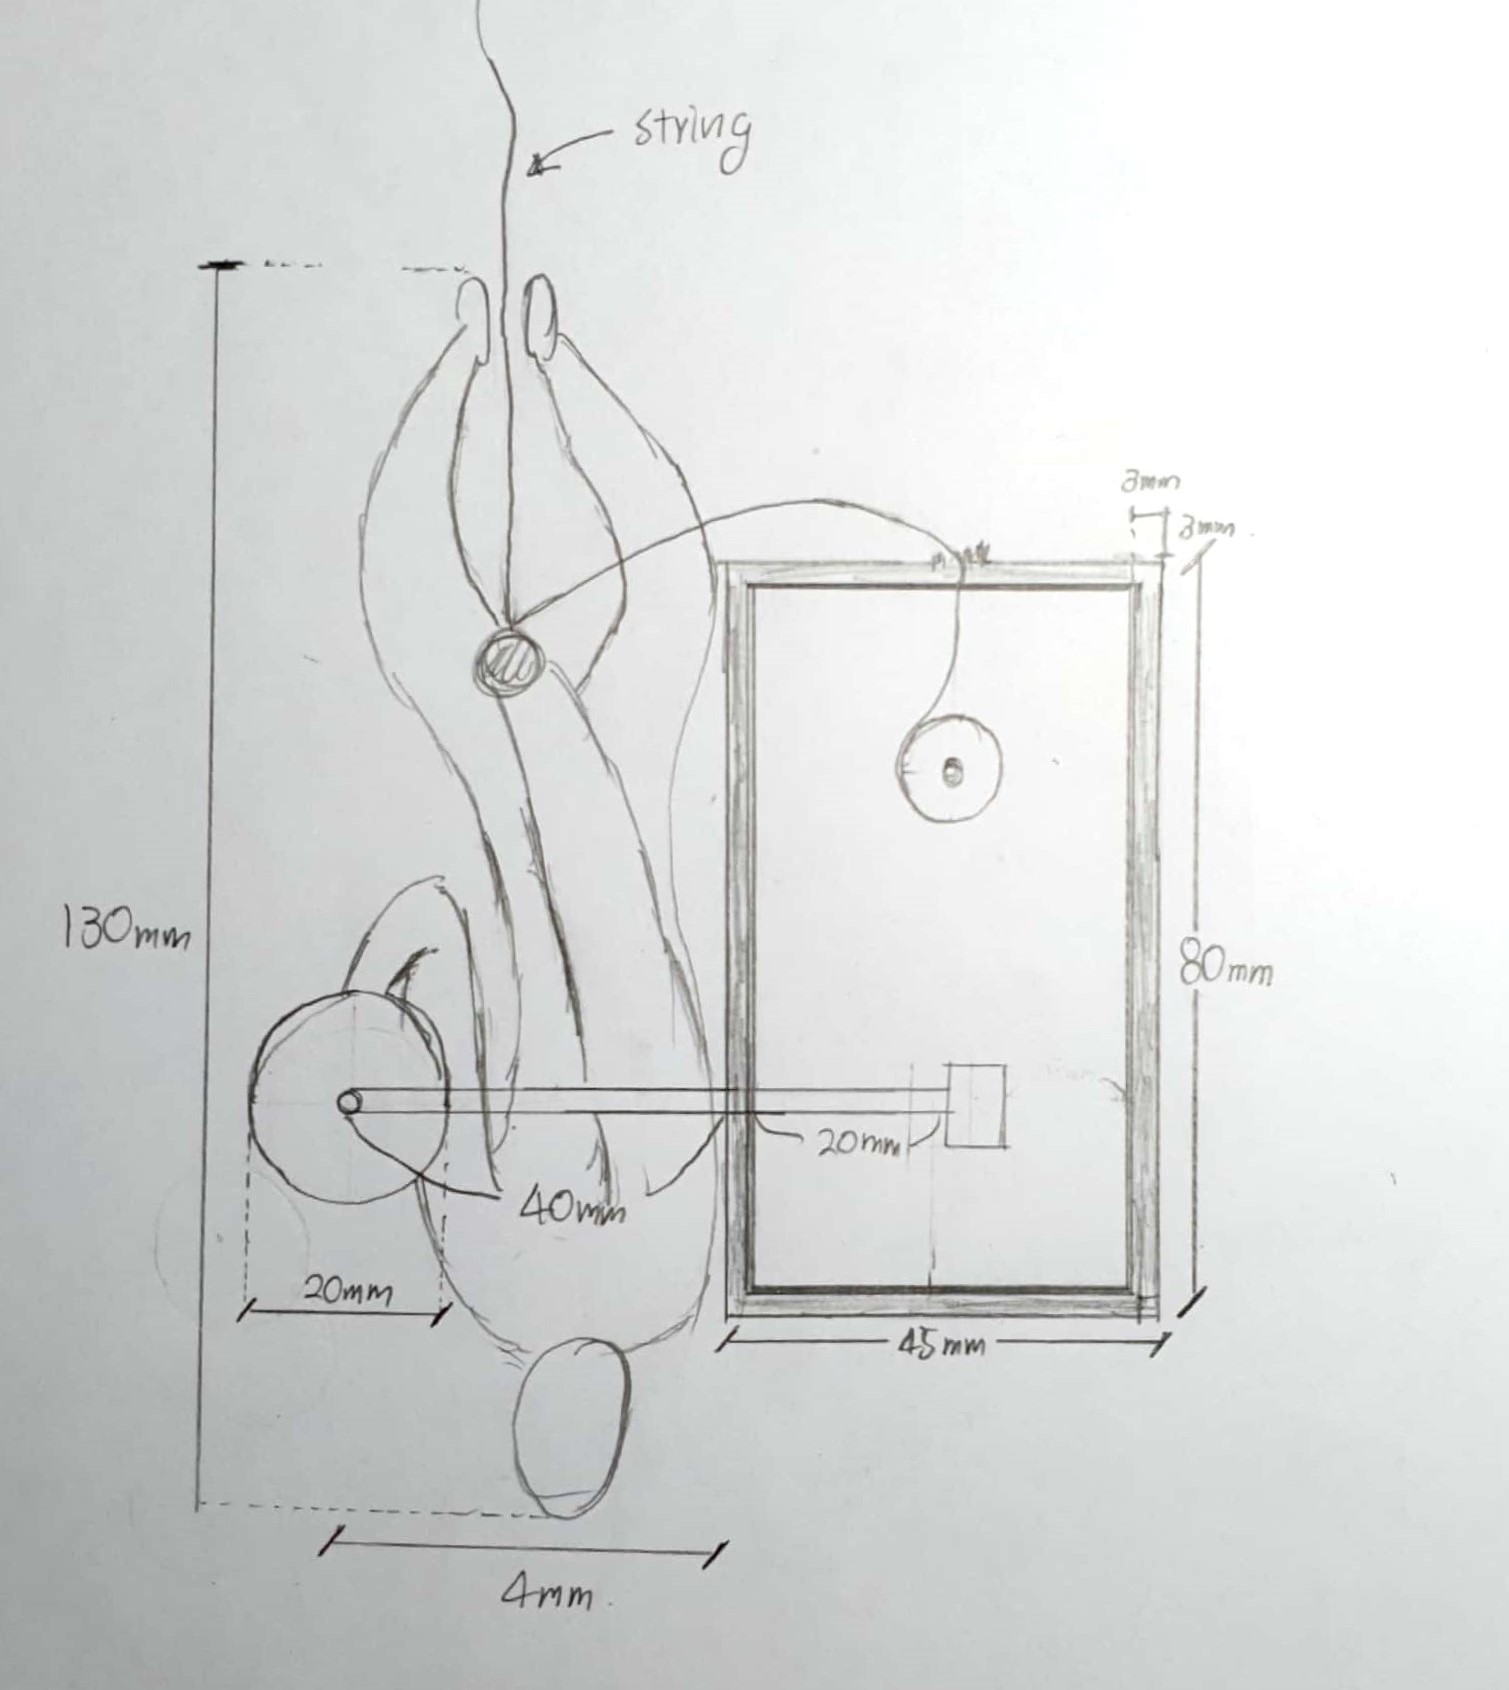 string
3mm
3mm
130mm
80mm
20mm
40mm
20mm
45mm
4mm.